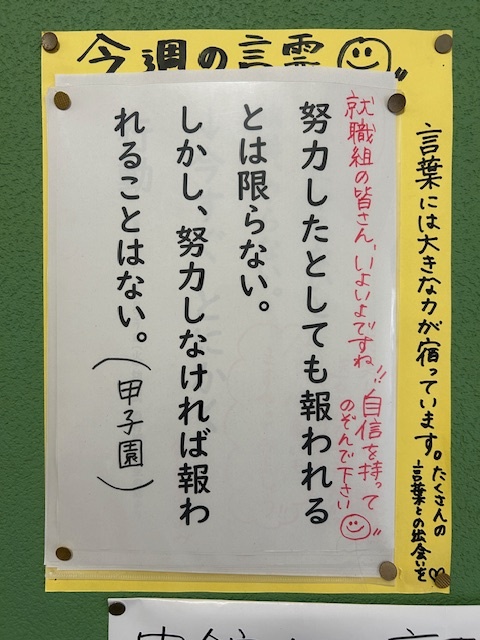 今週の言霊
言葉には大きな力が宿っています。
たくさんの
言葉との出会いを♡
就職組の皆さん、いよいよですね!!自信を持って
のぞんで下さい
努力したとしても報われる
とは限らない。
しかし、努力しなければ報わ
れることはない。
(甲子園)